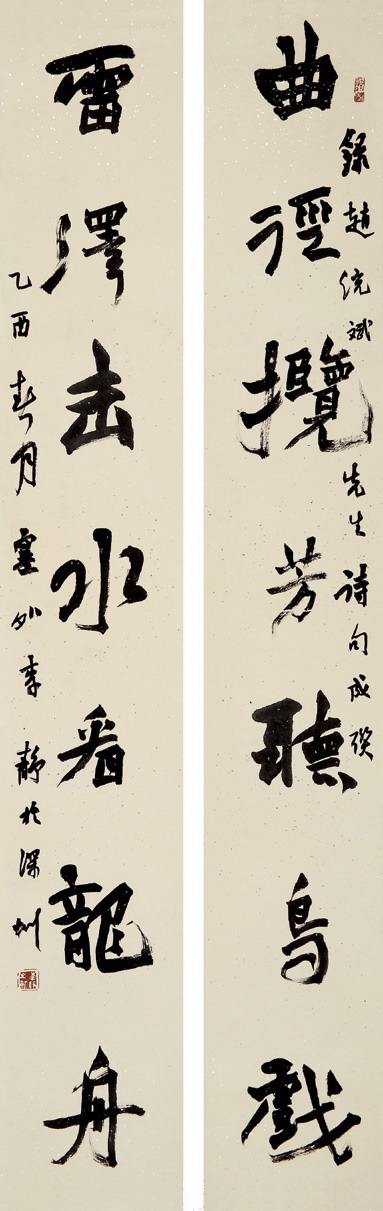 曲徑攬芳聽鳥戲
錄趙統斌先生詩句成聯
雷澤击水看龍舟
乙酉春月塞外李靜於深圳